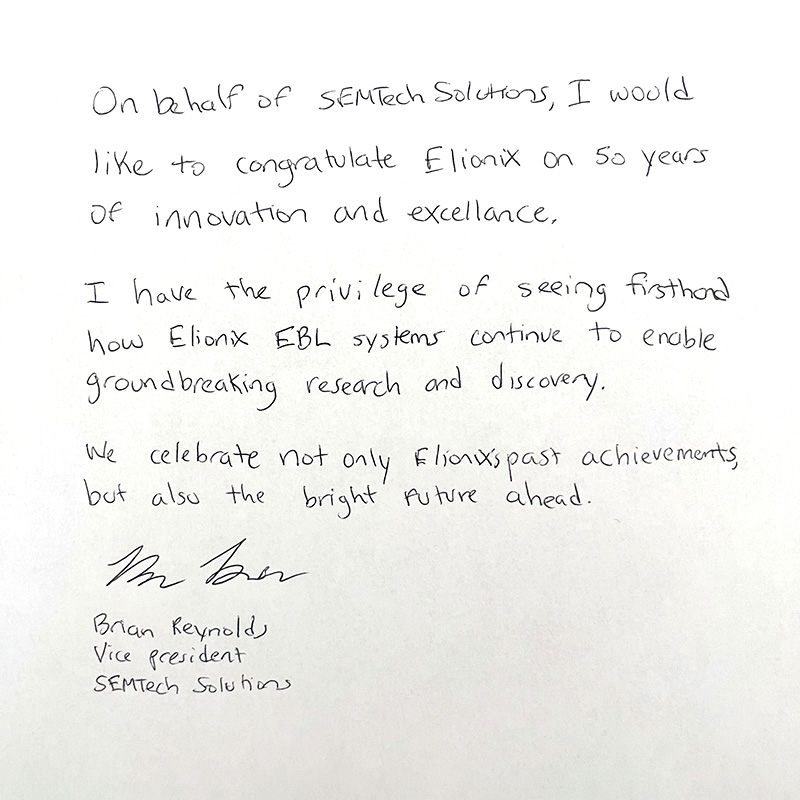 On behalf of SEMTech Solutions, I would
like to congratulate Elionix on 50 years
of innovation and excellance.
I have the privilege of seeing firsthand
how Elionix EBL systems continue to enable
groundbreaking research and discovery.
We celebrate not only Elionix's past achievements,
but also the bright future ahead.
Brian Reynolds
Vice president
SEMTech Solutions